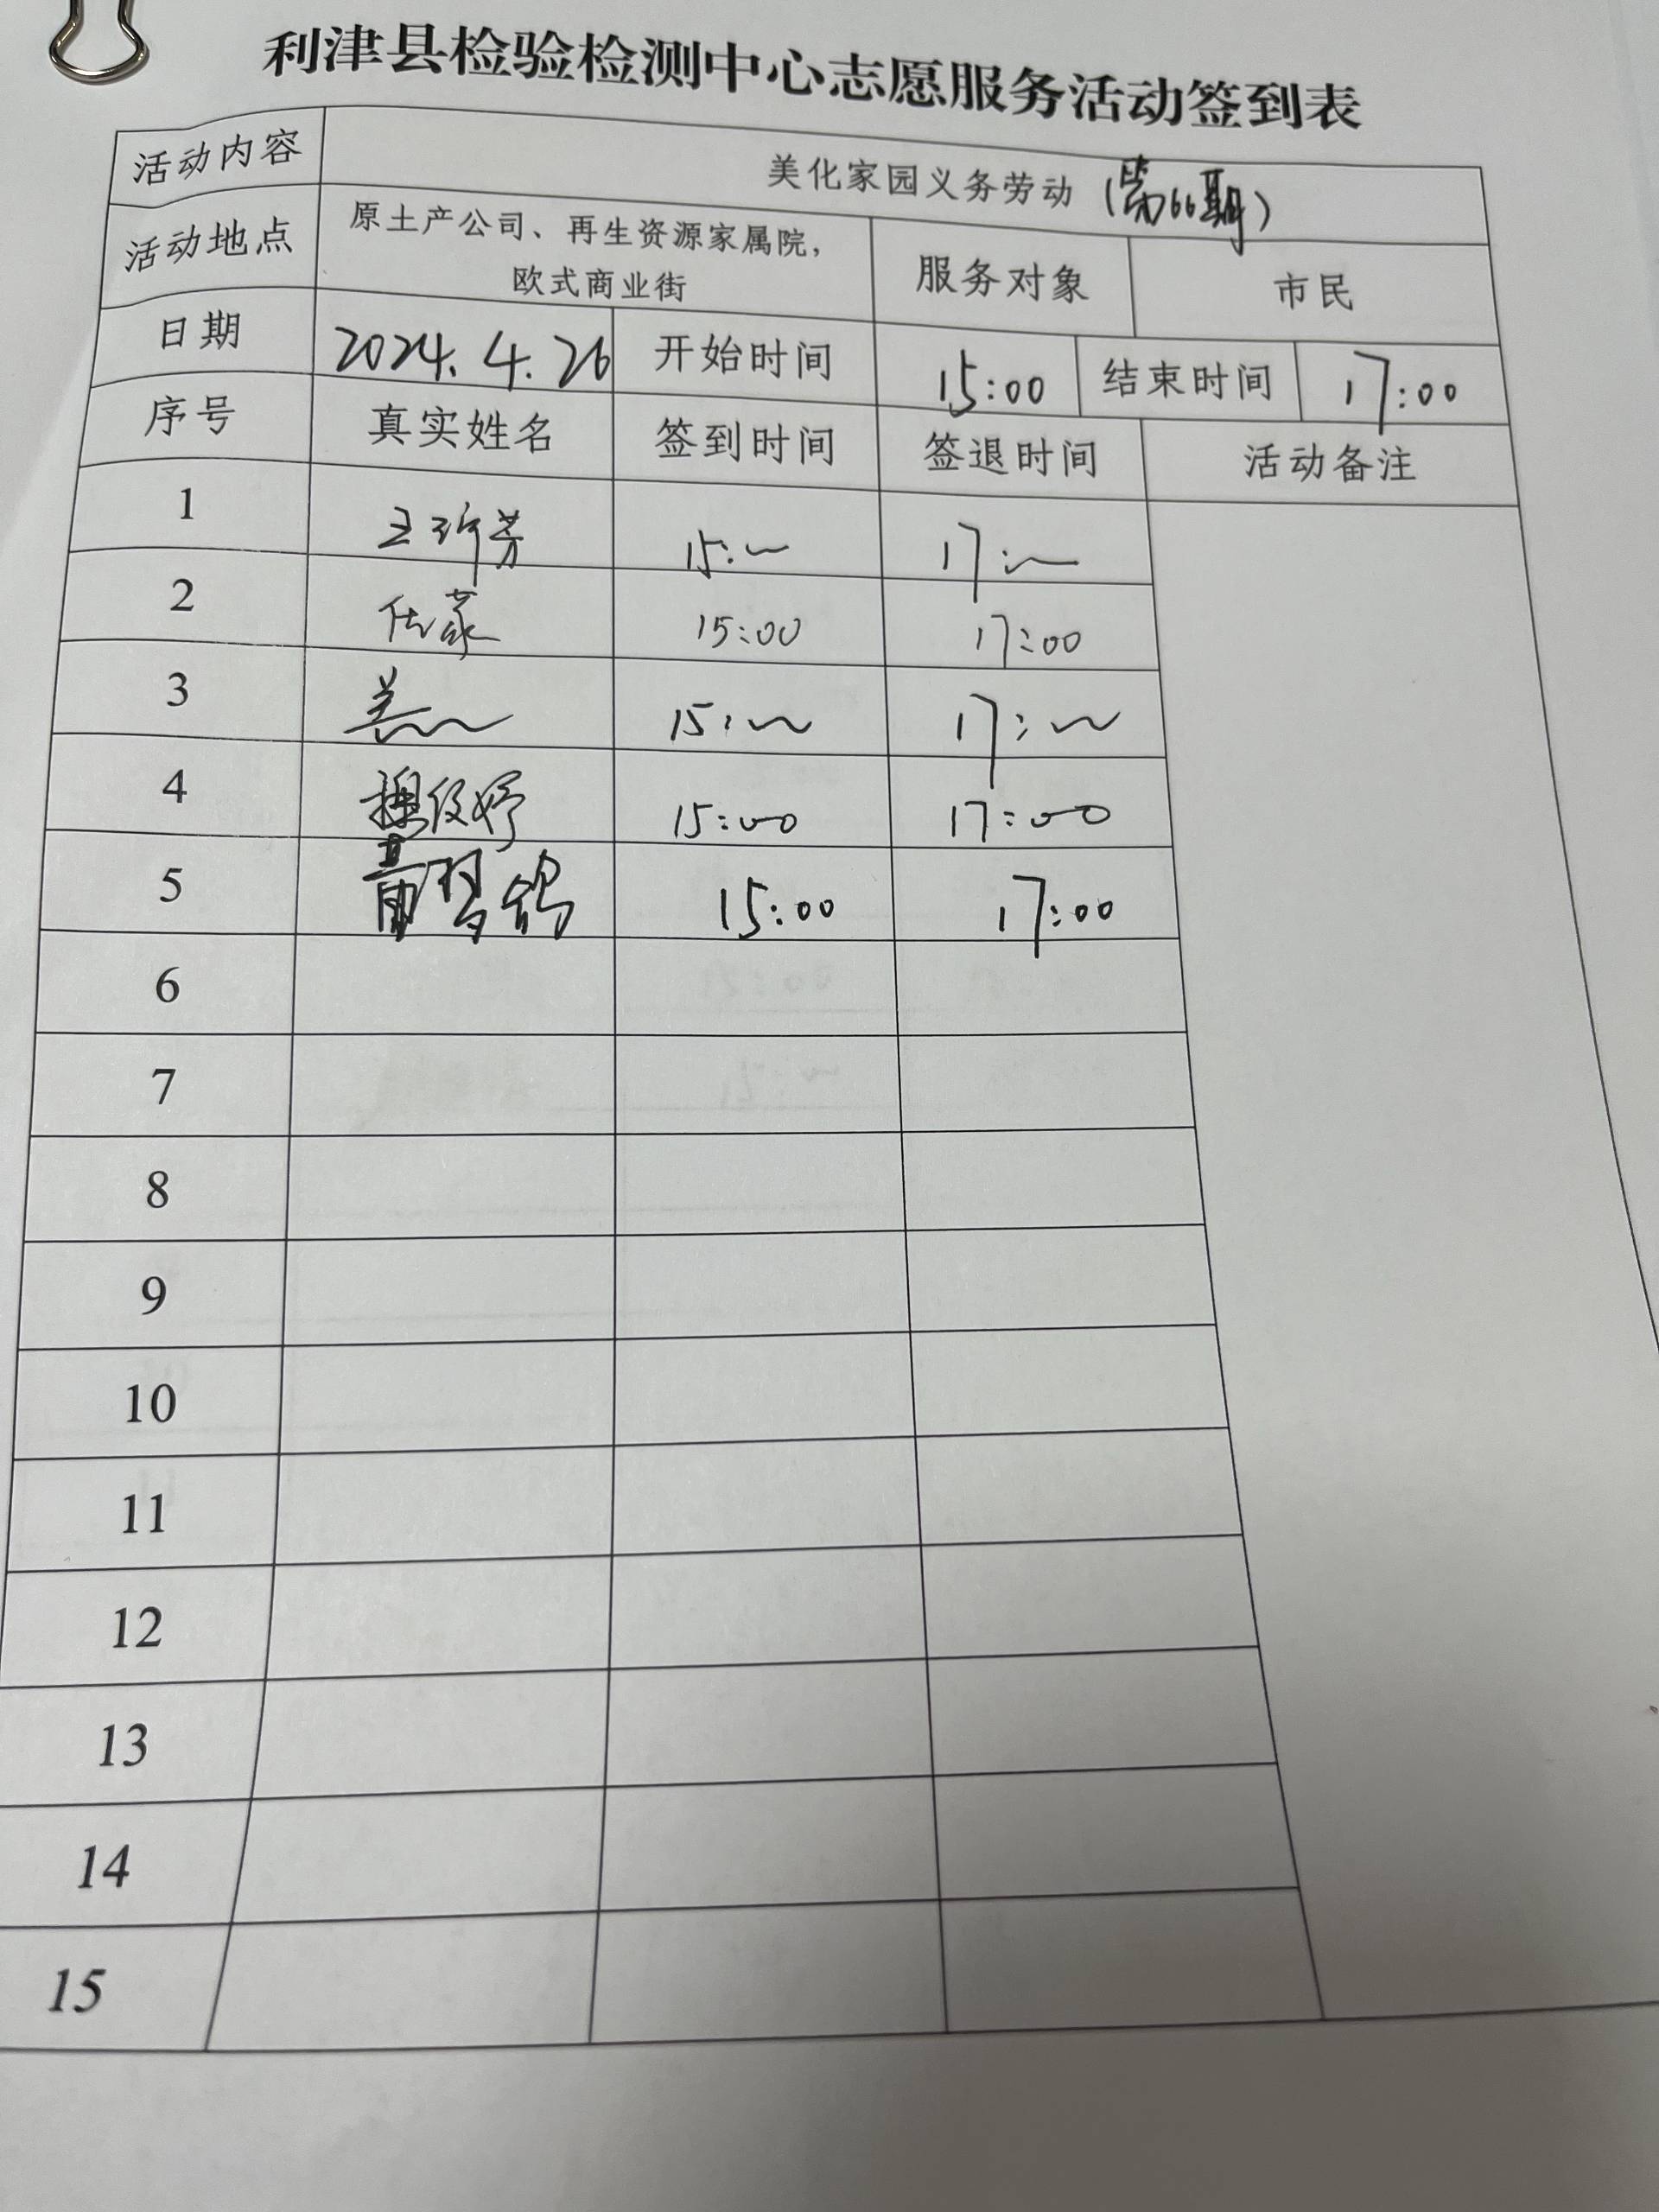 利津县检验检测中心志愿服务活动签到表
活动内容 美化家园义务劳动 (第66期)
活动地点 原土产公司、再生资源家属院，
欧式商业街 服务对象 市民
日期 2024.4.26 开始时间 15:00 结束时间 17:00
序号 真实姓名 签到时间 签退时间 活动备注
1 15: 17:
2 15:00 17:00
3 15: 17:
4 15:00 17:00
5 15:00 17:00
6
7
8
9
10
11
12
13
14
15